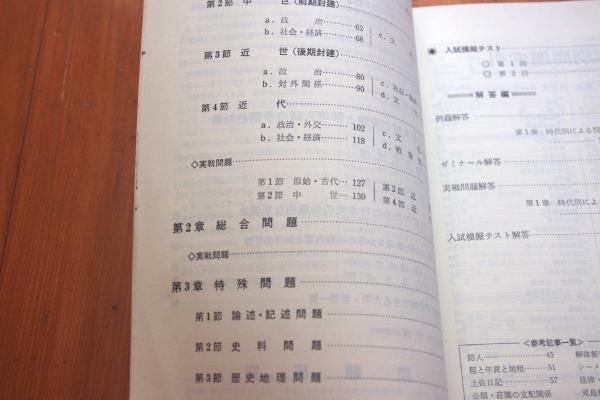 第2節 中 世(前期封建)
a. 政 治……62
b. 社会・経済……68
c. 文
第3節 近 世(後期封建)
a. 政 治……80
b. 対外関係……90
c. 社会・
d. 文
第4節 近 代
a. 政治・外交……102
b. 社会・経済……118
c. 文
d. 戦 後
◇実戦問題
第1節 原始・古代…127
第2節 中 世…130
第3節 近
第4節 近
第2章 総合問題
◇実戦問題
第3章 特殊問題
第1節 論述・記述問題
第2節 史料問題
第3節 歴史地理問題
入試模擬テスト
◎ 第1回
◎ 第2回
解答編
例題解答
第1章 時代別による問
ゼミナール解答
実戦問題解答
第1章 時代別によ
入試模擬テスト解答
<参考記事一覧>
防人……45
租と年貢と地租……51
土佐日記……57
公領・荘園の支配関係
解体新
シーメ
法律・
児島